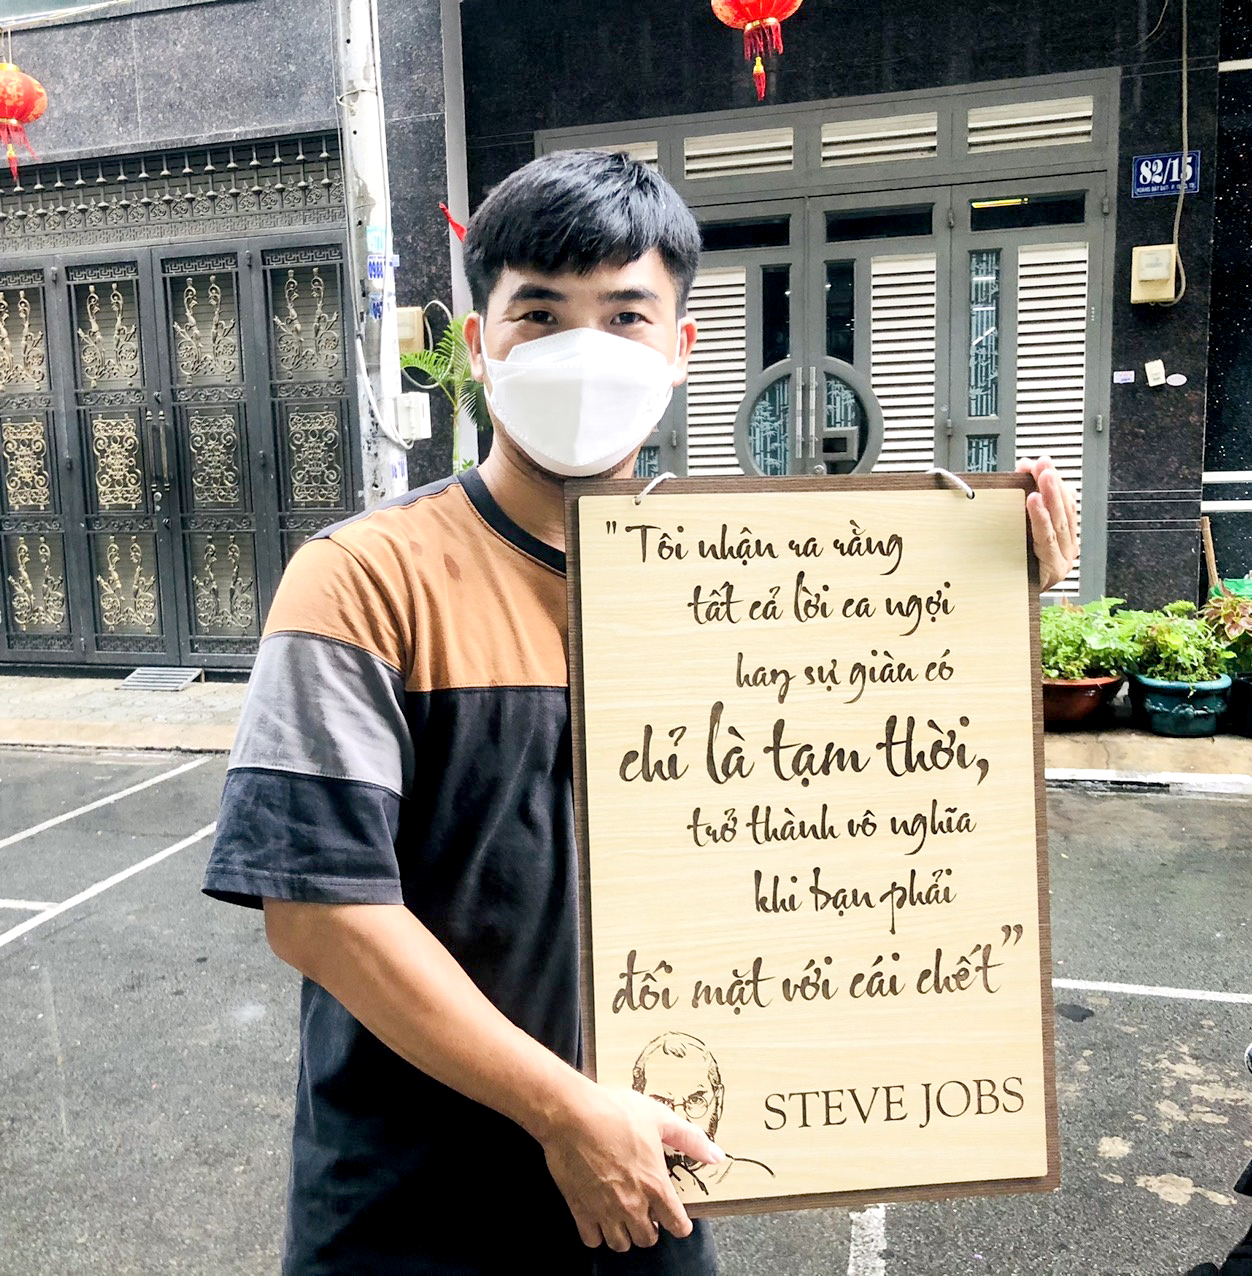 82/15
"Tôi nhận ra rằng
tất cả lời ca ngợi
hay sự giàu có
chỉ là tạm thời,
trở thành vô nghĩa
khi bạn phải
đối mặt với cái chết”
STEVE JOBS